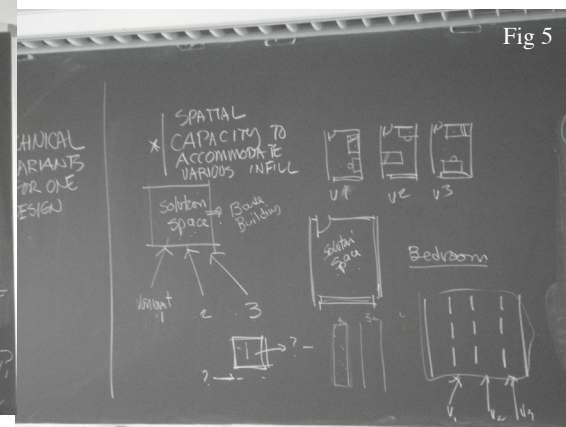 Fig 5
HNICAL
ARIANTS
OR ONE
ESIGN
* SPATIAL
CAPACITY TO
ACCOMMODATE
VARIOUS INFILL
Solution
Space
Base
Building
Variant
1
2
3
?
?
V1
V2
V3
Solution
Space
Bedroom
V1